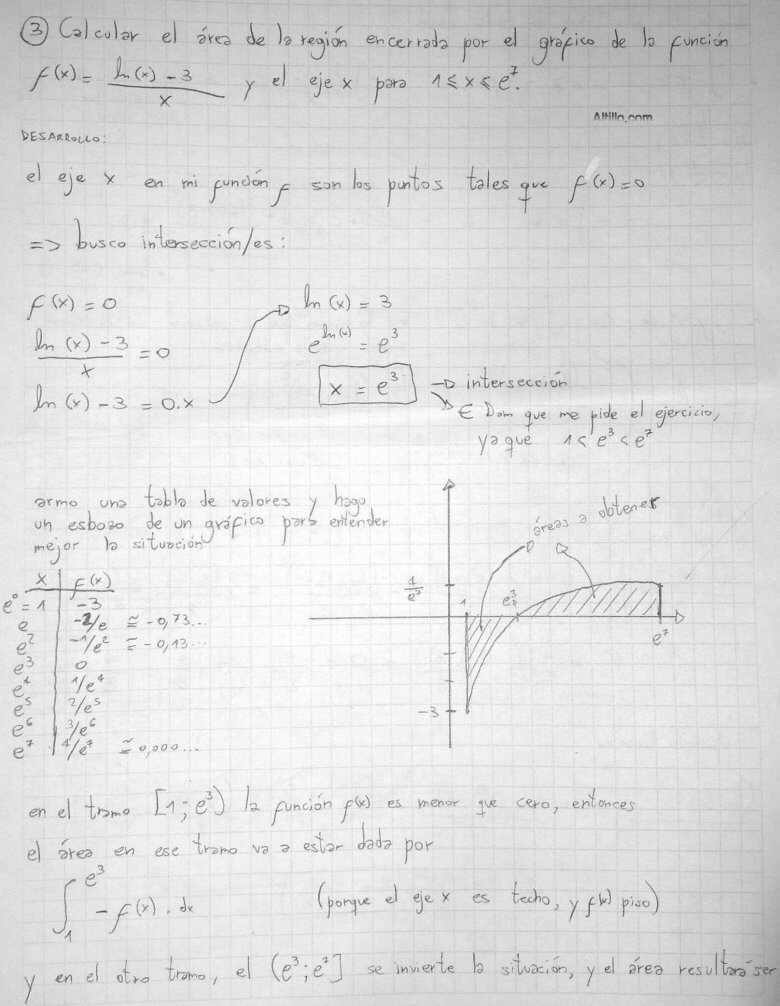 ③ Calcular el área de la región encerrada por el gráfico de la función
f(x) = (ln(x) - 3)/x y el eje x para 1 ≤ x ≤ e⁷.
Altillo.com
DESARROLLO:
el eje x en mi función f son los puntos tales que f(x)=0
=> busco intersección/es:
f(x) = 0
(ln(x) - 3)/x = 0
ln(x) - 3 = 0.x
ln(x) = 3
e^ln(x) = e³
x = e³
→ intersección
→ ∈ Dom que me pide el ejercicio,
ya que 1 < e³ < e⁷
armo una tabla de valores y hago
un esbozo de un gráfico para entender
mejor la situación
x | f(x)
e⁰ = 1 | -3
e | -2/e ≅ -0,73...
e² | -1/e² ≅ -0,13...
e³ | 0
e⁴ | 1/e⁴
e⁵ | 2/e⁵
e⁶ | 3/e⁶
e⁷ | 4/e⁷ ≅ 0,000...
áreas a obtener
1
e³
e⁷
-3
en el tramo [1; e³) la función f(x) es menor que cero, entonces
el área en ese tramo va a estar dada por
∫₁^e³ -f(x) . dx (porque el eje x es techo, y f(x) piso)
y en el otro tramo, el (e³; e⁷] se invierte la situación, y el área resultará ser